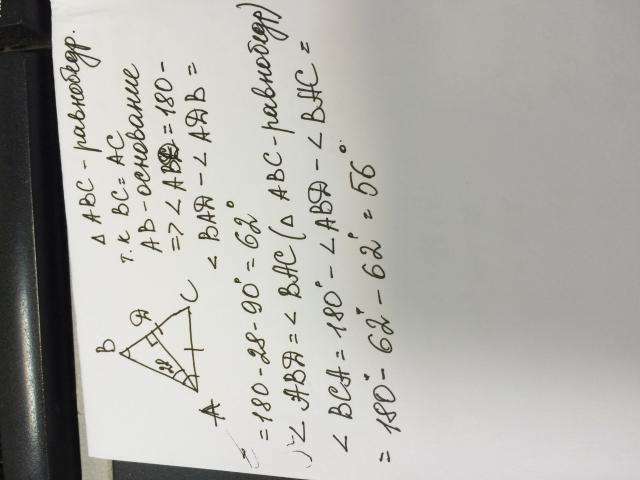 B
D
28
A
C
△ ABC - равнобедр.
т.к BC = AC
AB - основание
=> ∠ ABD = 180 -
∠ BAD - ∠ ADB =
= 180 - 28 - 90° = 62°
∠ ABD = ∠ BAC (△ ABC - равнобедр)
∠ BCA = 180° - ∠ ABD - ∠ BAC =
= 180° - 62° - 62° = 56°